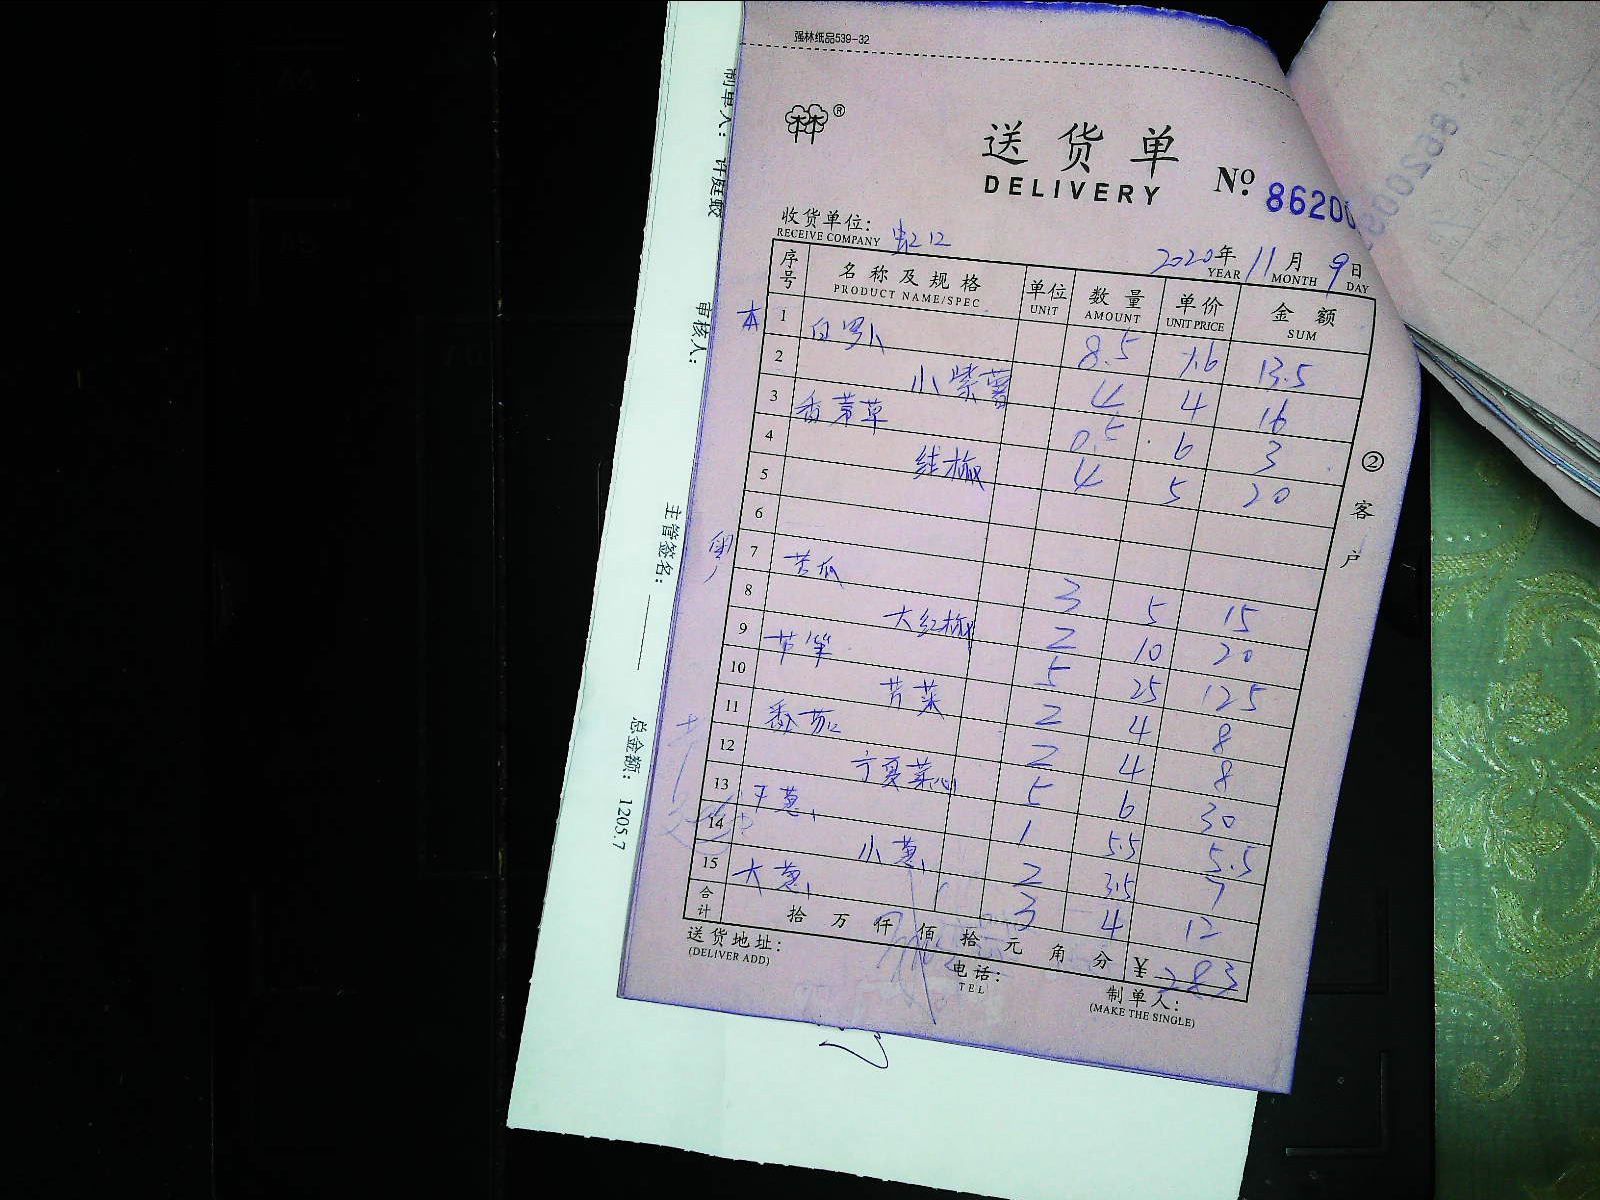 强林纸品539-32
林®
送货单
DELIVERY
№ 86200
收货单位： 虹12
RECEIVE COMPANY
2020年 11月 9日
YEAR MONTH DAY
序号 名称及规格 单位 数量 单价 金额
PRODUCT NAME/SPEC UNIT AMOUNT UNIT PRICE SUM
本 1 白罗卜 8.5 1.6 13.5
2 小紫薯 4 4 16
3 香茅草 0.5 6 3
4 4 5 20
5
6
7 苦瓜 3 5 15
8 大红椒 2 10 20
9 5 25 125
10 芹菜 2 4 8
11 番茄 2 4 8
12 宁夏菜心 5 6 30
13 干葱 1 5.5 5.5
14 小葱 2 3.5 7
15 大葱 3 4 12
合计 拾 万 仟 佰 拾 元 角 分 ¥ 283
送货地址：
(DELIVER ADD)
电话：
TEL
制单人：
(MAKE THE SINGLE)
② 客户
制单人： 许庭蛟
审核人：
主管签名：
总金额： 1205.7